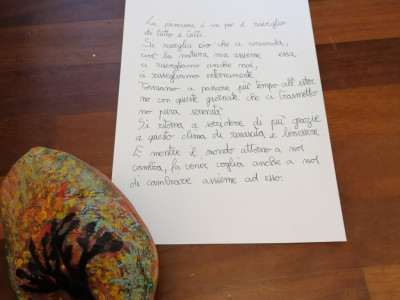 La primavera è un po' il risveglio
di tutto e tutti.
Si risveglia ciò che ci circonda,
cioè la natura, ma assieme essa
ci risvegliamo anche noi,
ci risvegliamo internamente.
Torniamo a passare più tempo all'ester
no con queste giornate che ci trasmetto
no pura serenità
Si ritorna a sorridere di più grazie
a questo clima di rinascita e benessere.
E mentre il mondo attorno a noi
cambia, fa venir voglia anche a noi
di cambiare assieme ad esso.